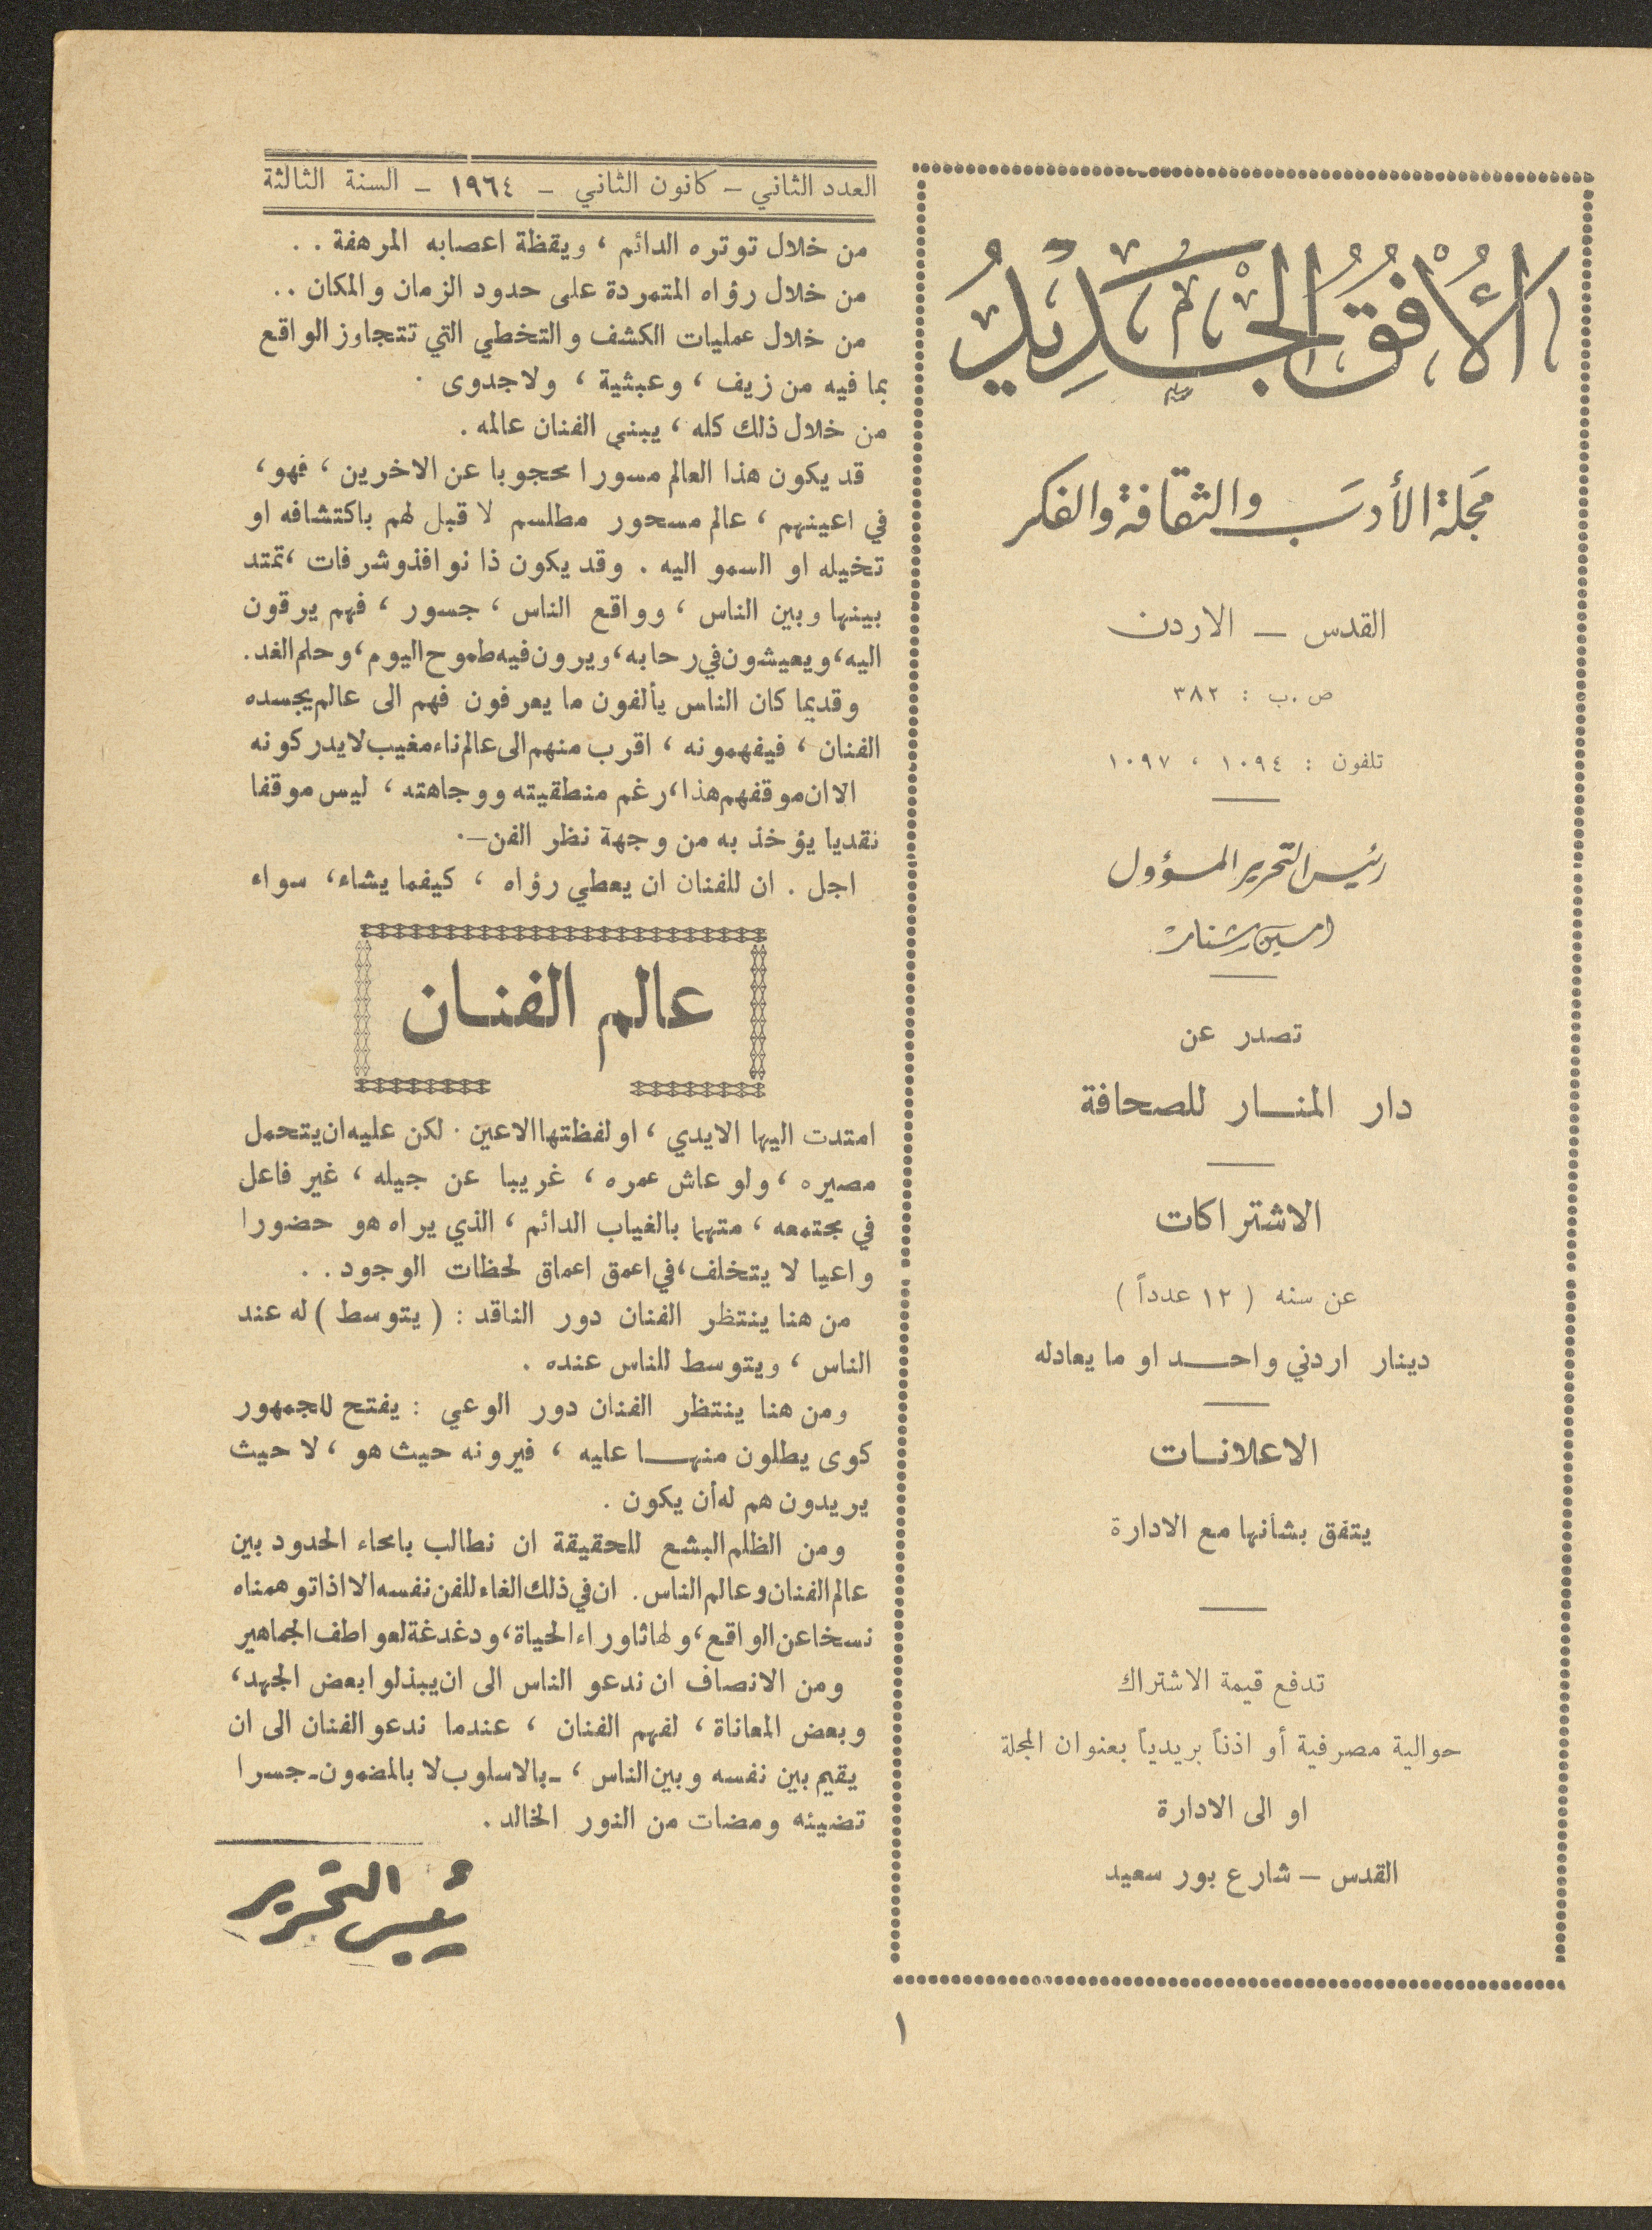 الأُفُقُ الجَدِيدُ
مَجَلة الأدَب والثقافة والفكر
القدس – الاردن
ص.ب : ٣٨٢
تلفون : ١٠٩٤ ، ١٠٩٧
رئيس التحرير المسؤول
امين شنار
تصدر عن
دار المنـــار للصحافة
الاشتراكات
عن سنه ( ١٢ عدداً )
دينار اردني واحـــد او ما يعادله
الاعلانــات
يتفق بشأنها مع الادارة
تدفع قيمة الاشتراك
حوالية مصرفية أو اذناً بريدياً بعنوان المجلة
او الى الادارة
القدس – شارع بور سعيد
العدد الثاني – كانون الثاني – ١٩٦٤ – السنة الثالثة
من خلال توتره الدائم ، ويقظة اعصابه المرهفة . .
من خلال رؤاه المتمردة على حدود الزمان والمكان . .
من خلال عمليات الكشف والتخطي التي تتجاوز الواقع
بما فيه من زيف ، وعبثية ، ولاجدوى .
من خلال ذلك كله ، يبني الفنان عالمه .
قد يكون هذا العالم مسورا محجوبا عن الاخرين ، فهو ،
في اعينهم ، عالم مسحور مطلسم لا قبل لهم باكتشافه او
تخيله او السمو اليه . وقد يكون ذا نوافذ وشرفات ، تمتد
بينها وبين الناس ، وواقع الناس ، جسور ، فهم يرقون
اليه ، ويعيشون في رحابه ، ويرون فيه طموح اليوم ، وحلم الغد .
وقديما كان الناس يألفون ما يعرفون فهم الى عالم يجسده
الفنان ، فيفهمونه ، اقرب منهم الى عالم ناء مغيب لا يدركونه
الا ان موقفهم هذا ، رغم منطقيته ووجاهته ، ليس موقفا
نقديا يؤخذ به من وجهة نظر الفن – .
اجل . ان للفنان ان يعطي رؤاه ، كيفما يشاء ، سواء
عالم الفنــان
امتدت اليها الايدي ، او لفظتها الاعين . لكن عليه ان يتحمل
مصيره ، ولو عاش عمره ، غريبا عن جيله ، غير فاعل
في مجتمعه ، متهما بالغياب الدائم ، الذي يراه هو حضورا
واعيا لا يتخلف ، في اعمق اعماق لحظات الوجود . .
من هنا ينتظر الفنان دور الناقد : ( يتوسط ) له عند
الناس ، ويتوسط للناس عنده .
ومن هنا ينتظر الفنان دور الوعي : يفتح للجمهور
كوى يطلون منهـــا عليه ، فيرونه حيث هو ، لا حيث
يريدون هم له أن يكون .
ومن الظلم البشع للحقيقة ان نطالب بامحاء الحدود بين
عالم الفنان وعالم الناس . ان في ذلك الغاء للفن نفسه الا اذا توهمناه
نسخا عن الواقع ، ولهاثا وراء الحياة ، ودغدغة لعواطف الجماهير
ومن الانصاف ان ندعو الناس الى ان يبذلوا بعض الجهد ،
وبعض المعاناة ، لفهم الفنان ، عندما ندعو الفنان الى ان
يقيم بين نفسه وبين الناس ، – بالاسلوب لا بالمضمون – جسرا
تضيئه ومضات من النور الخالد .
رئيس التحرير
١